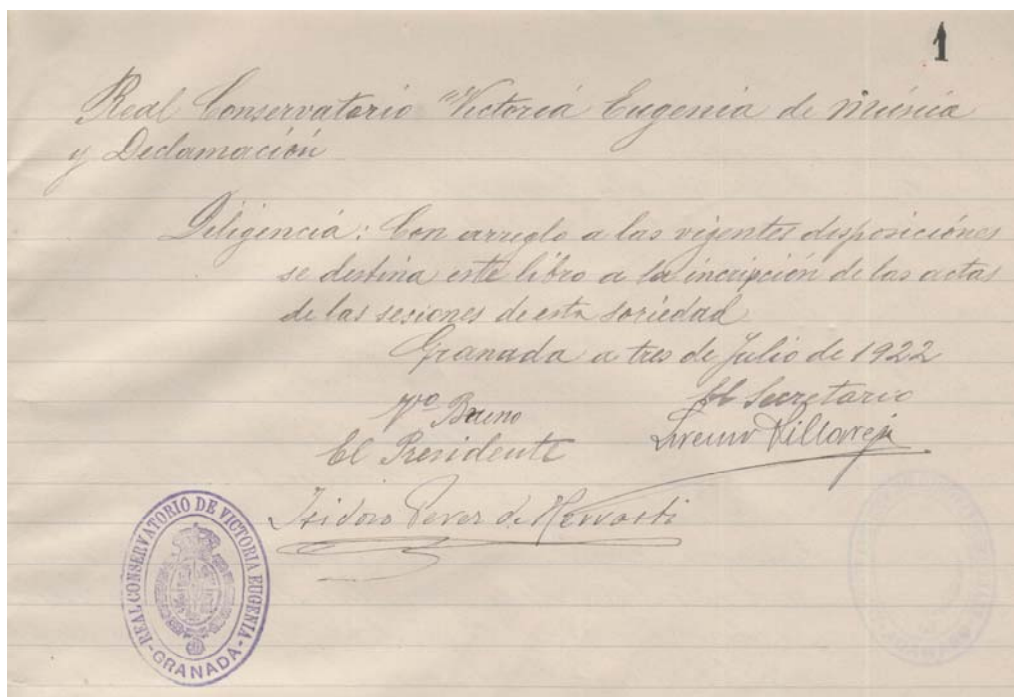 1
Real Conservatorio "Victoria Eugenia de Música
y Declamación
Diligencia: Con arreglo a las vigentes disposiciónes
se destina este libro a la incripción de las actas
de las sesiones de esta sociedad
Granada a tres de Julio de 1922
Vº Bueno
El Secretario
El Presidente
Villareja
Isidoro Perez de Herrasti
REAL CONSERVATORIO DE VICTORIA EUGENIA
GRANADA